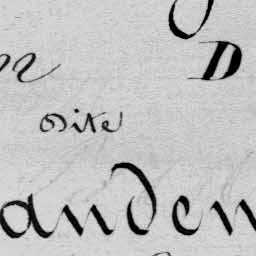 D
dite
anden